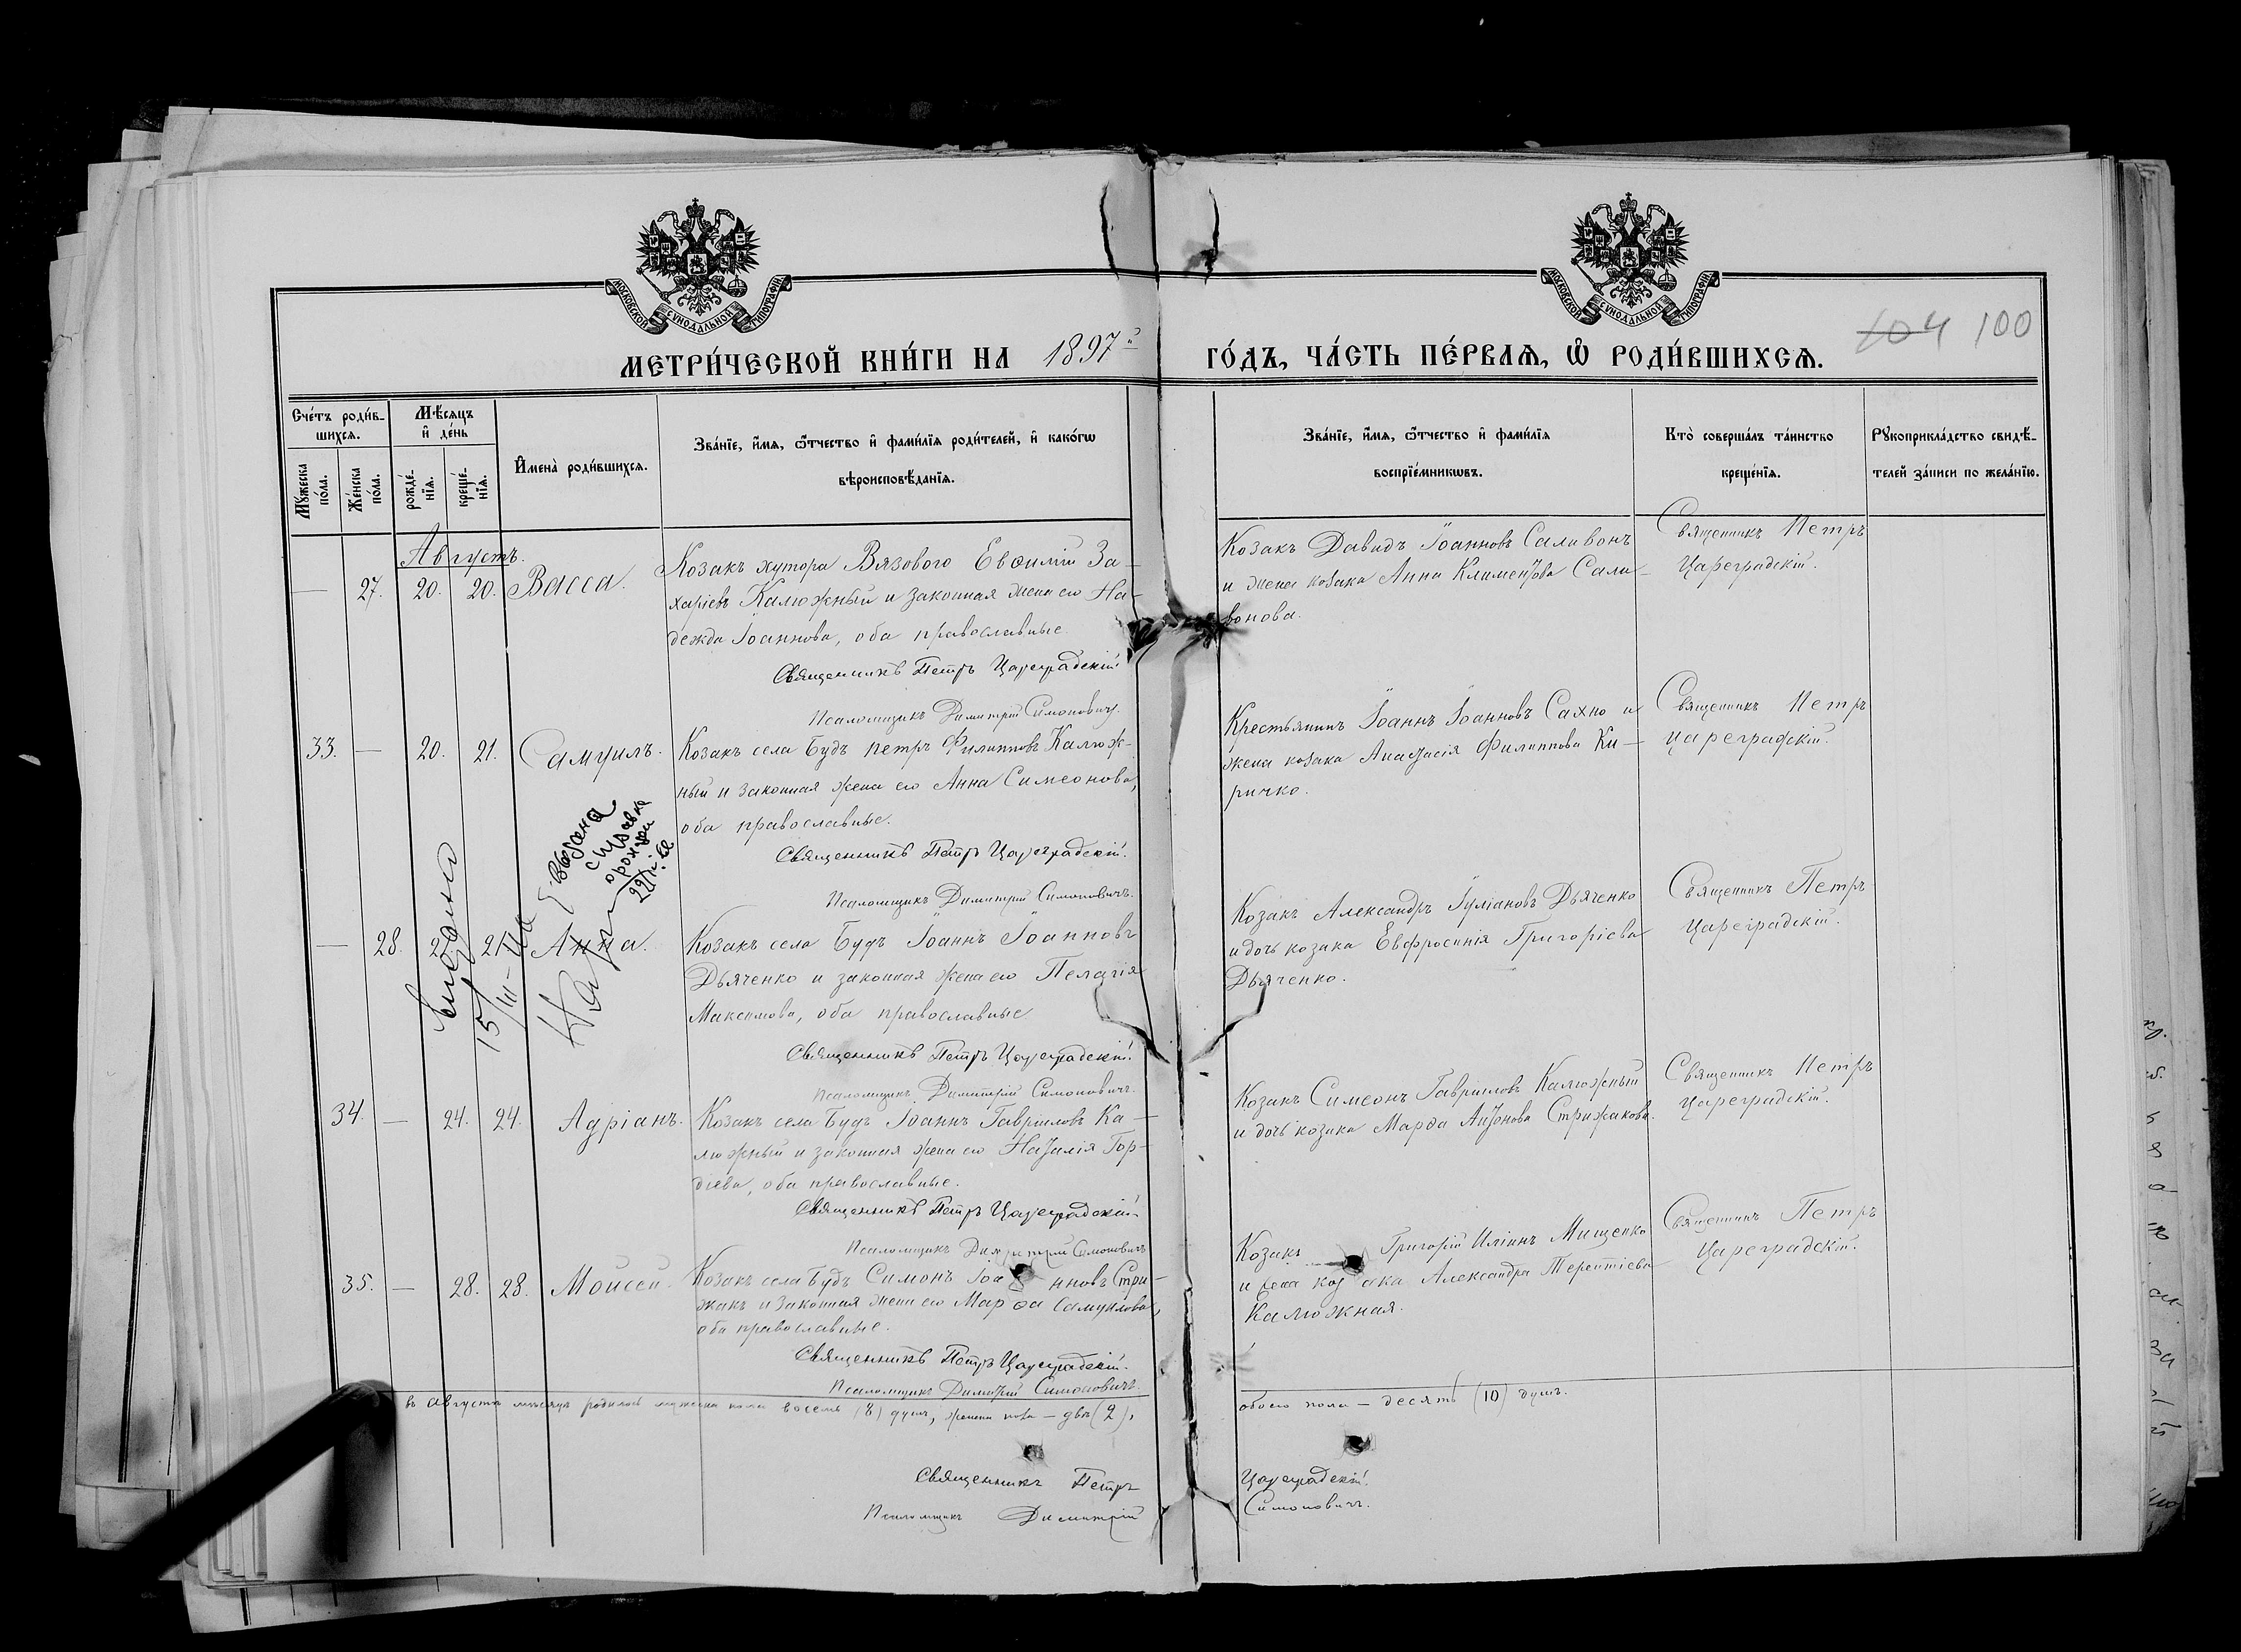 МОСКОВСКОЙ СѴНОДАЛЬНОЙ ТИПОГРАФІИ
МОСКОВСКОЙ СѴНОДАЛЬНОЙ ТИПОГРАФІИ
104 100
МЕТРИ́ЧЕСКОЙ КНИ́ГИ НА 1897й ГО́ДЪ, ЧА́СТЬ ПЕ́РВАѦ, Ѡ РОДИ́ВШИХСѦ.
Сче́тъ роди́в-
шихсѧ.
Мꙋ́жеска
по́ла.
Же́нска
по́ла.
Мѣ́сѧцъ
и҆ де́нь
рожде́-
нїѧ.
креще́-
нїѧ.
И҆мена̀ роди́вшихсѧ.
Зва́нїе, и҆́мѧ, ѻ҆́тчество и҆ фами́лїѧ роди́телей, и҆ како́гѡ
вѣроисповѣ́данїѧ.
Зва́нїе, и҆́мѧ, ѻ҆́тчество и҆ фами́лїѧ
воспрїе́мникѡвъ.
Кто̀ соверша́лъ та́инство
креще́нїѧ.
Рꙋкоприкла́дство свидѣ́-
телей за́писи по жела́нїю.
Августъ.
— 27. 20. 20. Васса.
Козакъ хутора Вязового Евѳимій За-
харіевъ Калюжный и законная жена его На-
дежда Іоаннова, оба православные.
Священникъ Петръ Цареградскій.
Псаломщикъ Димитрій Симоновичъ.
Козакъ Давидъ Іоанновъ Саливонъ
и жена козака Анна Климентова Сали-
вонова.
Священникъ Петръ
Цареградскій.
33. — 20. 21. Самуилъ.
Козакъ села Будъ Петръ Филипповъ Калюж-
ный и законная жена его Анна Симеонова,
оба православные.
Священникъ Петръ Цареградскій.
Псаломщикъ Димитрій Симоновичъ.
Крестьянинъ Іоаннъ Іоанновъ Сахно и
жена козака Анастасія Филиппова Ки-
ричко.
Священникъ Петръ
Цареградскій.
Выдана
справка
о рожден
выдано
15/III-
— 28. 21. Анна.
Козакъ села Будъ Іоаннъ Іоанновъ
Дьяченко и законная жена его Пелагія
Максимова, оба православные.
Священникъ Петръ Цареградскій.
Псаломщикъ Димитрій Симоновичъ.
Козакъ Александръ Іуліановъ Дьяченко
и дочь козака Евфросинія Григоріева
Дьяченко.
Священникъ Петръ
Цареградскій.
34. — 24. 24. Адріанъ.
Козакъ села Будъ Іоаннъ Гавриловъ Ка-
люжный и законная жена его Наталія Гор-
діева, оба православные.
Священникъ Петръ Цареградскій.
Псаломщикъ Димитрій Симоновичъ
Козакъ Симеонъ Гавриловъ Калюжный
и дочь козака Марѳа Антонова Стрижакова.
Священникъ Петръ
Цареградскій.
35. — 28. 28. Моисей.
Козакъ села Будъ Симонъ Іоанновъ Стри-
жакъ и законная жена его Марѳа Самуилова,
оба православные.
Священникъ Петръ Цареградскій.
Псаломщикъ Димитрій Симоновичъ.
Козакъ Григорій Иліинъ Мищенко
и жена козака Александра Терентіева
Калюжная.
Священникъ Петръ
Цареградскій.
въ Августѣ мѣсяцѣ родилось мужеска пола восемь (8) душъ, женска пола — двѣ (2), обоего пола — десять (10) душъ.
Священникъ Петръ Цареградскій.
Псаломщикъ Димитрій Симоновичъ.